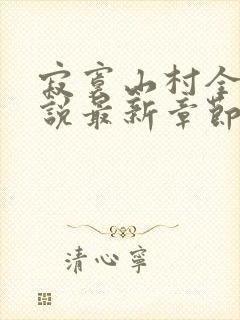 寂寞山村全
說最新章節
清心寧